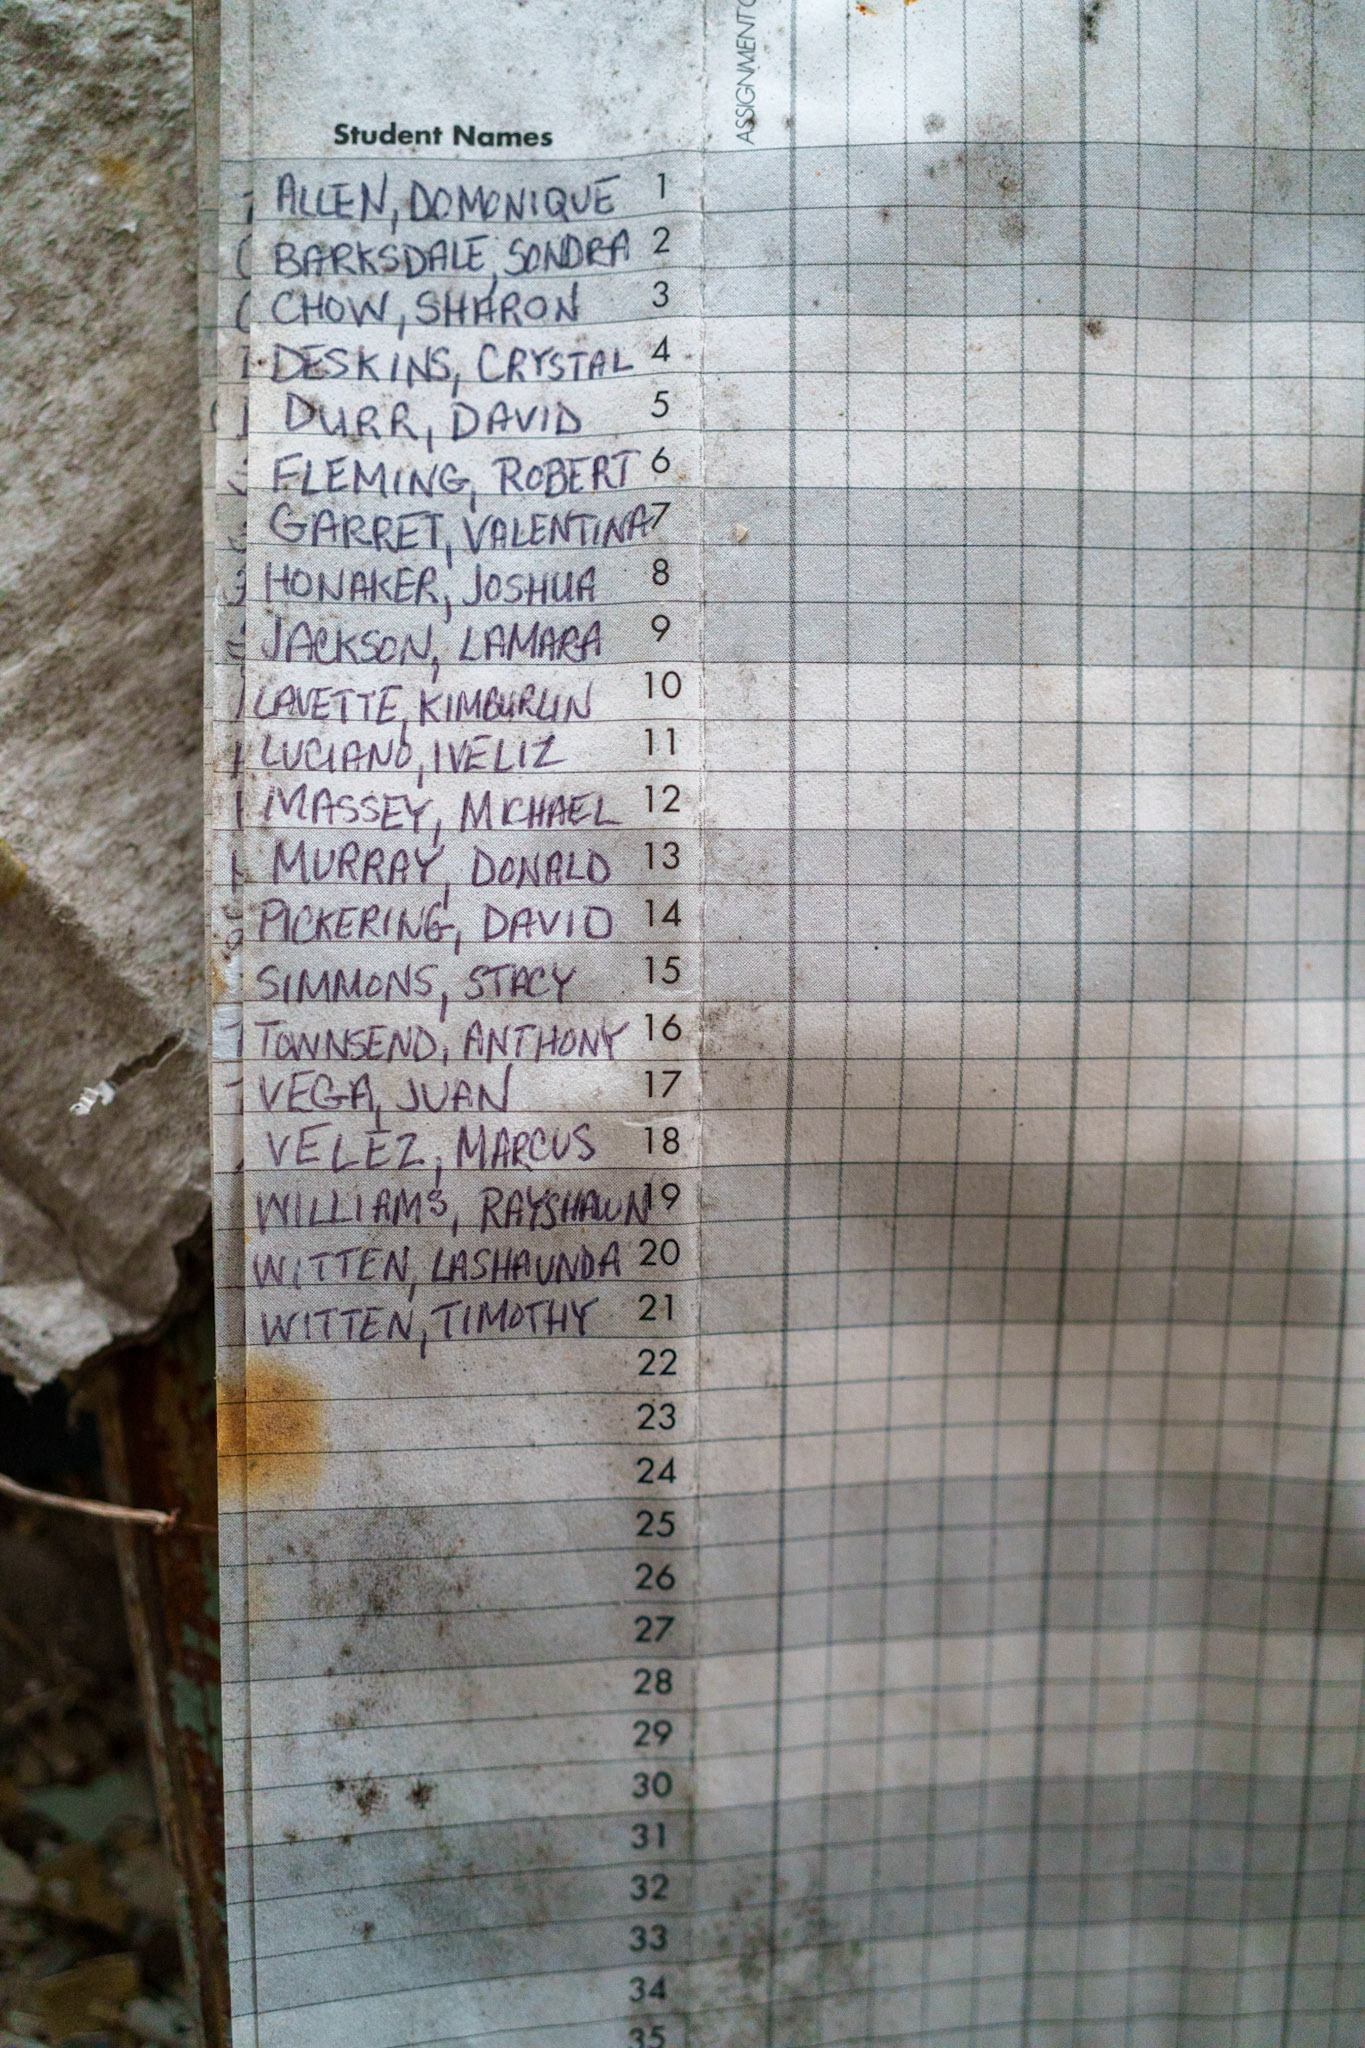 ASSIGNMENT
Student Names
ALLEN, DOMONIQUE 1
BARKSDALE, SONDRA 2
CHOW, SHARON 3
DESKINS, CRYSTAL 4
DURR, DAVID 5
FLEMING, ROBERT 6
GARRET, VALENTINA 7
HONAKER, JOSHUA 8
JACKSON, LAMARA 9
LAVETTE, KIMBURLIN 10
LUCIANO, IVELIZ 11
MASSEY, MICHAEL 12
MURRAY, DONALD 13
PICKERING, DAVID 14
SIMMONS, STACY 15
TOWNSEND, ANTHONY 16
VEGA, JUAN 17
VELEZ, MARCUS 18
WILLIAMS, RAYSHAWN 19
WITTEN, LASHAUNDA 20
WITTEN, TIMOTHY 21
22
23
24
25
26
27
28
29
30
31
32
33
34
35